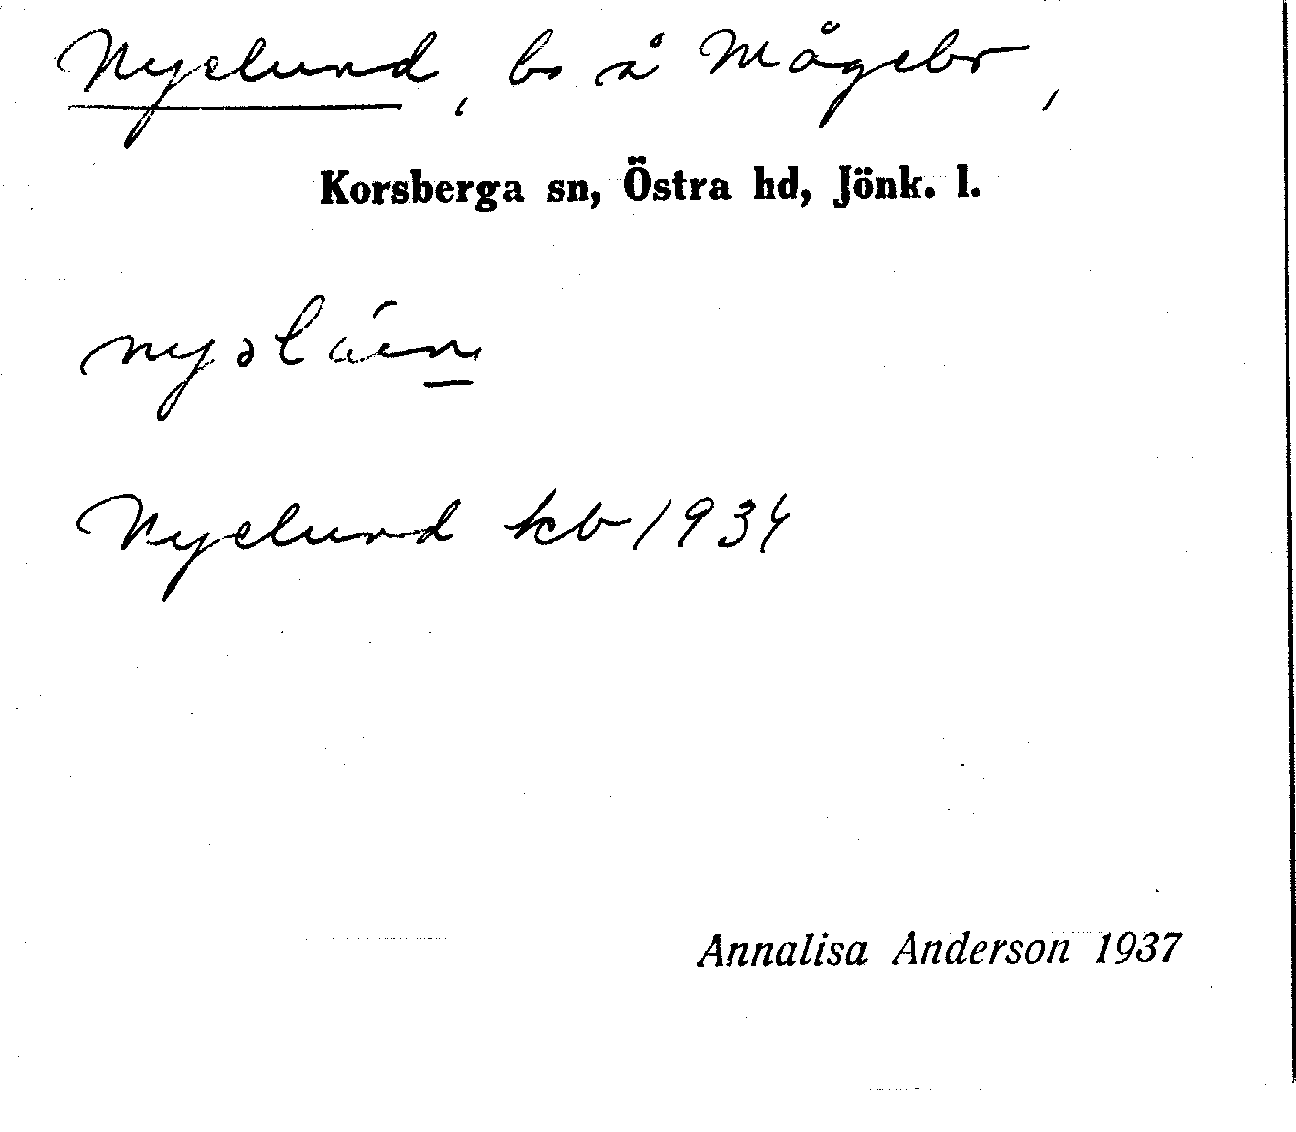 Nyelund, bs å Mågebo,
Korsberga sn, Östra hd, Jönk. l.
Nyelund kb 1934
Annalisa Anderson 1937